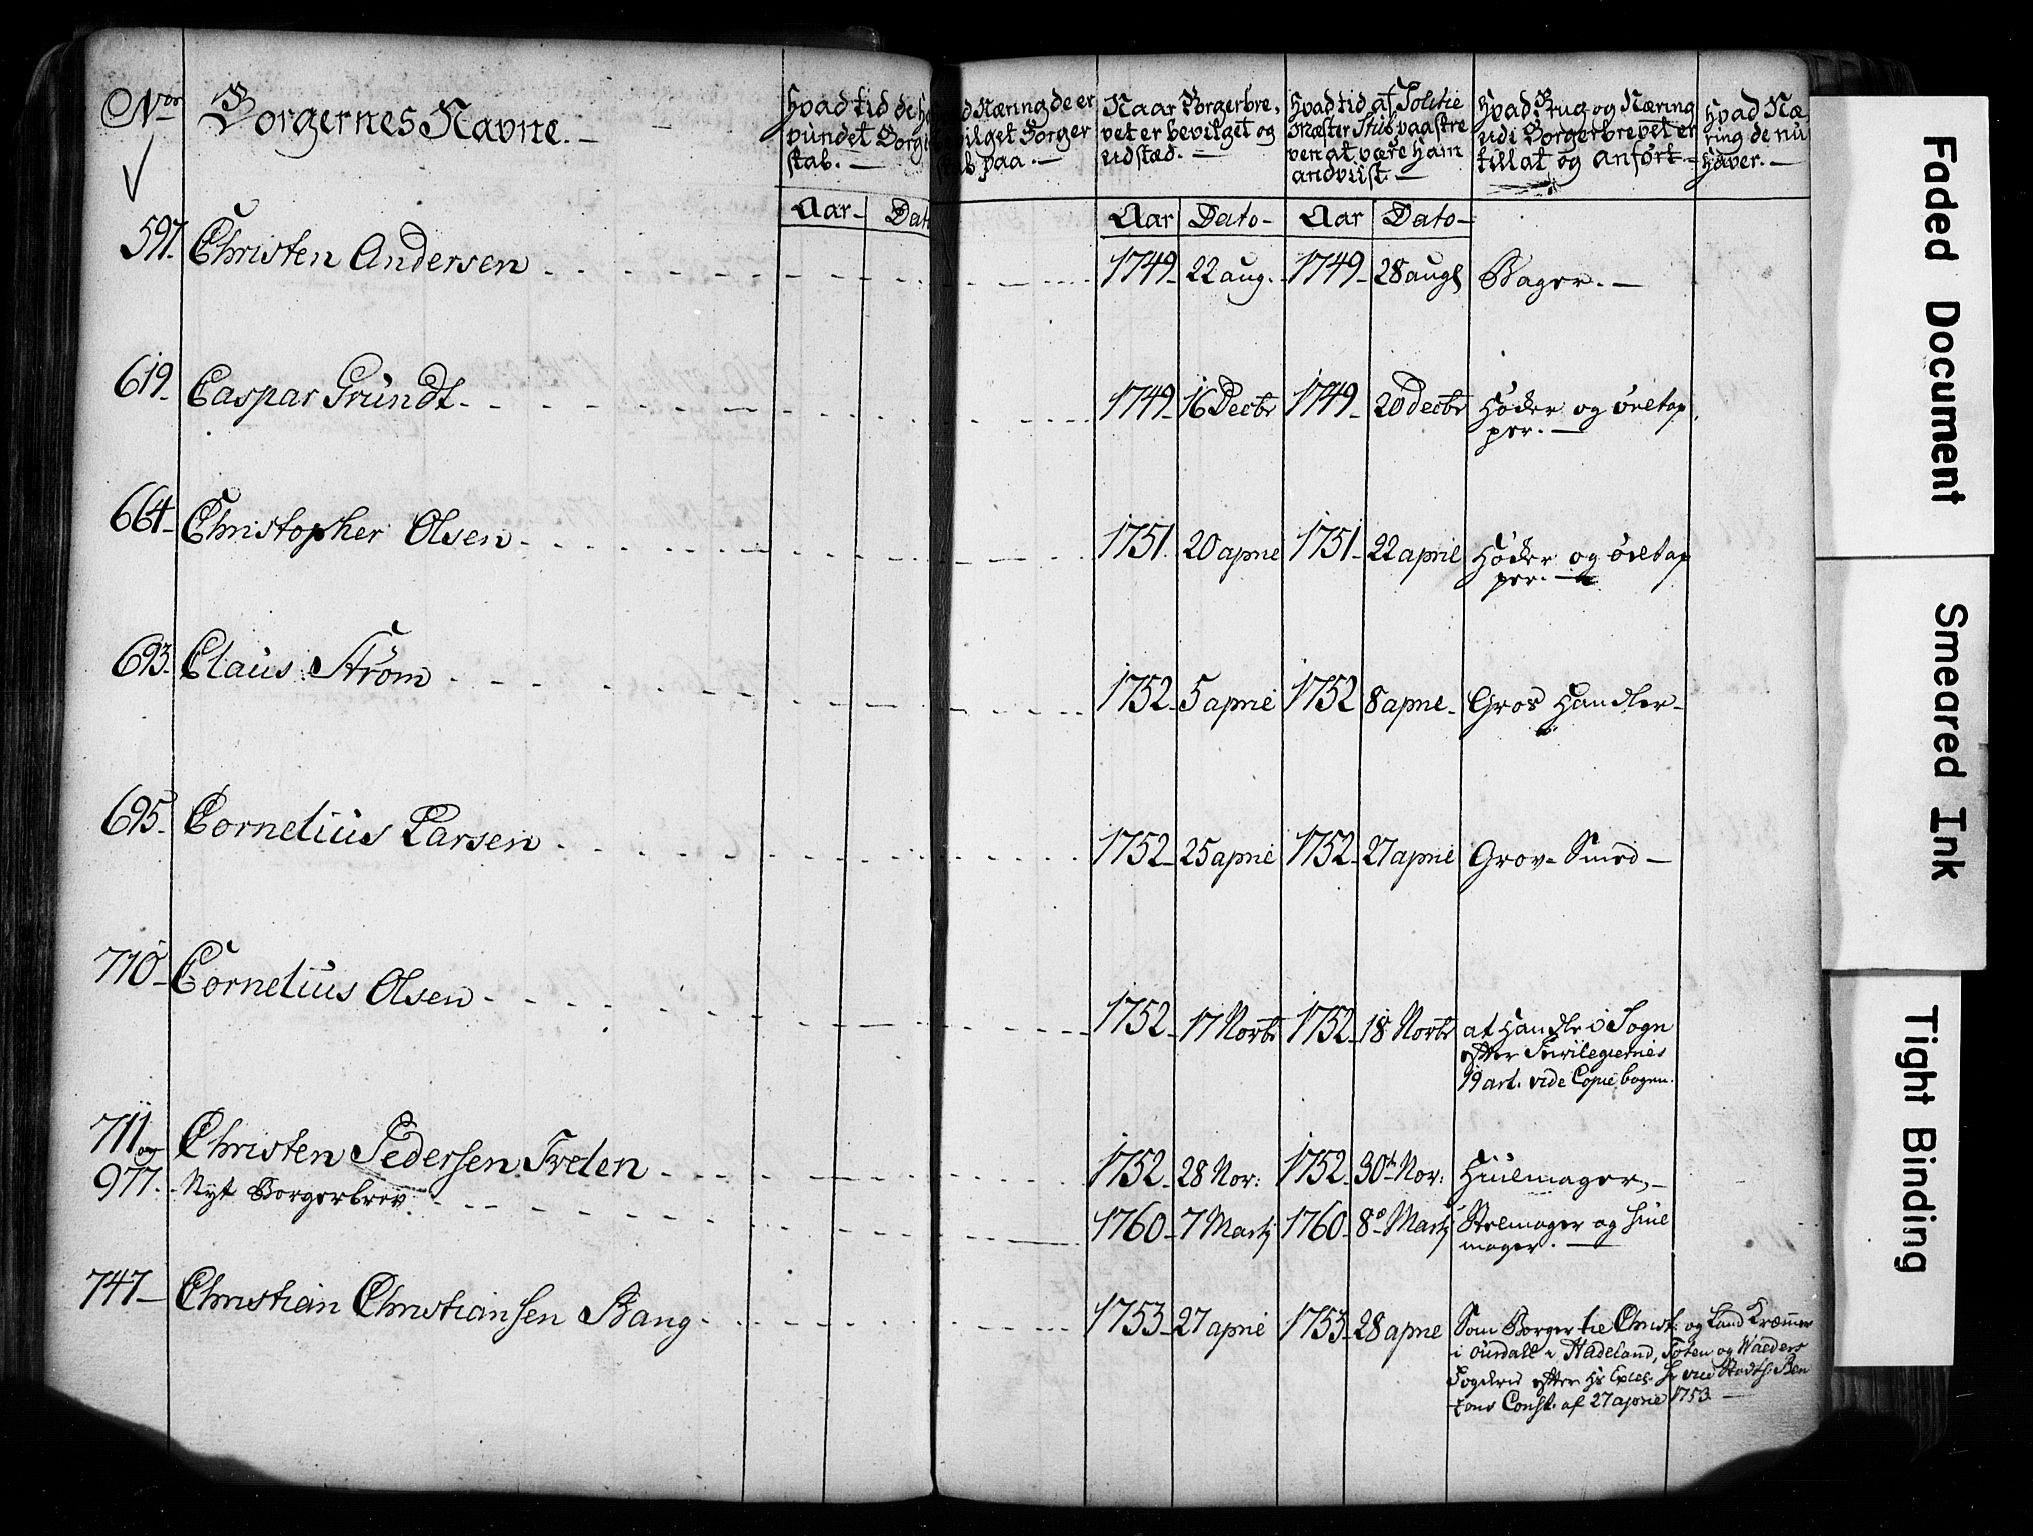 Nor
Borgernes Navne. —
Hvad tid de ha
vundet Borger
skab. —
d Næring de er
vilget Borger
skab paa. —
Naar Borgerbre,
vet er bevilget og
udstæd. —
Hvad tid af Politie
Mæster Stub paaskre
ven at være ham
andviist —
Hvad Brug og Næring
udi Borgerbrevet er
tillat og anført —
Hvad Næ
ring de nu
haver. —
Aar - Dat
Aar Dato - Aar Dato -
597. Christen Andersen 1749 22 aug. 1749 28 augs Bager. —
619. Caspar Gründt 1749 16 Decbr 1749 20 decbr Høcker og øltap
per. —
664 Christopher Olsen 1751. 20 april 1751 22 april Høcker og øltap
per. —
693. Claus Strøm 1752 5 april 1752 8 april Gros Handler
695. Cornelius Larsen 1752 25 april 1752 27 april Grov Smed —
710 Cornelius Olsen 1752 17 Novbr 1752 18 Novbr at Handle i Sogn
efter Privilegiernes
19 art. vide Copie bogen.
711 og Christen Pedersen Treten 1752 28 Nov: 1752 30t Nov: Hiulmager, —
977. Nyt Borgerbrev. 1760 7 Martj 1760 8e Martj Stolmager og Hiul
mager. —
747 Christian Christiansen Bang 1753 27 april 1753 28 april Som Borger til Christ: og Land Kræmer
i Ourdall i Hadeland, Toten og Walders
Fogderie efter Hs Excel. Hr vice Stadth: Ben
zons Const. af 27 april 1753
Faded Document
Smeared Ink
Tight Binding